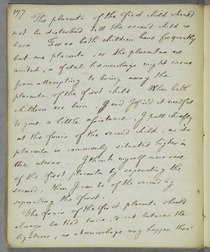 197
The placenta of the first child should
not be disturbed till the second child is
born. For as both children have frequently
but one placenta, or the placentae are
united, a fatal hoemorrhage might ensue
from attempting to bring away the
placenta of the first child. When both
children are born
to pull a little
at the funis of the second child, as its
placenta is commonly situated higher in
the uterus. I think myself more sure
of the first placenta by separating the
second, than I can be of the second by
separating the first.
The funis of the first placenta should
always be tied twice, & cut between the
ligatures, as a hoemorrhage may happen then